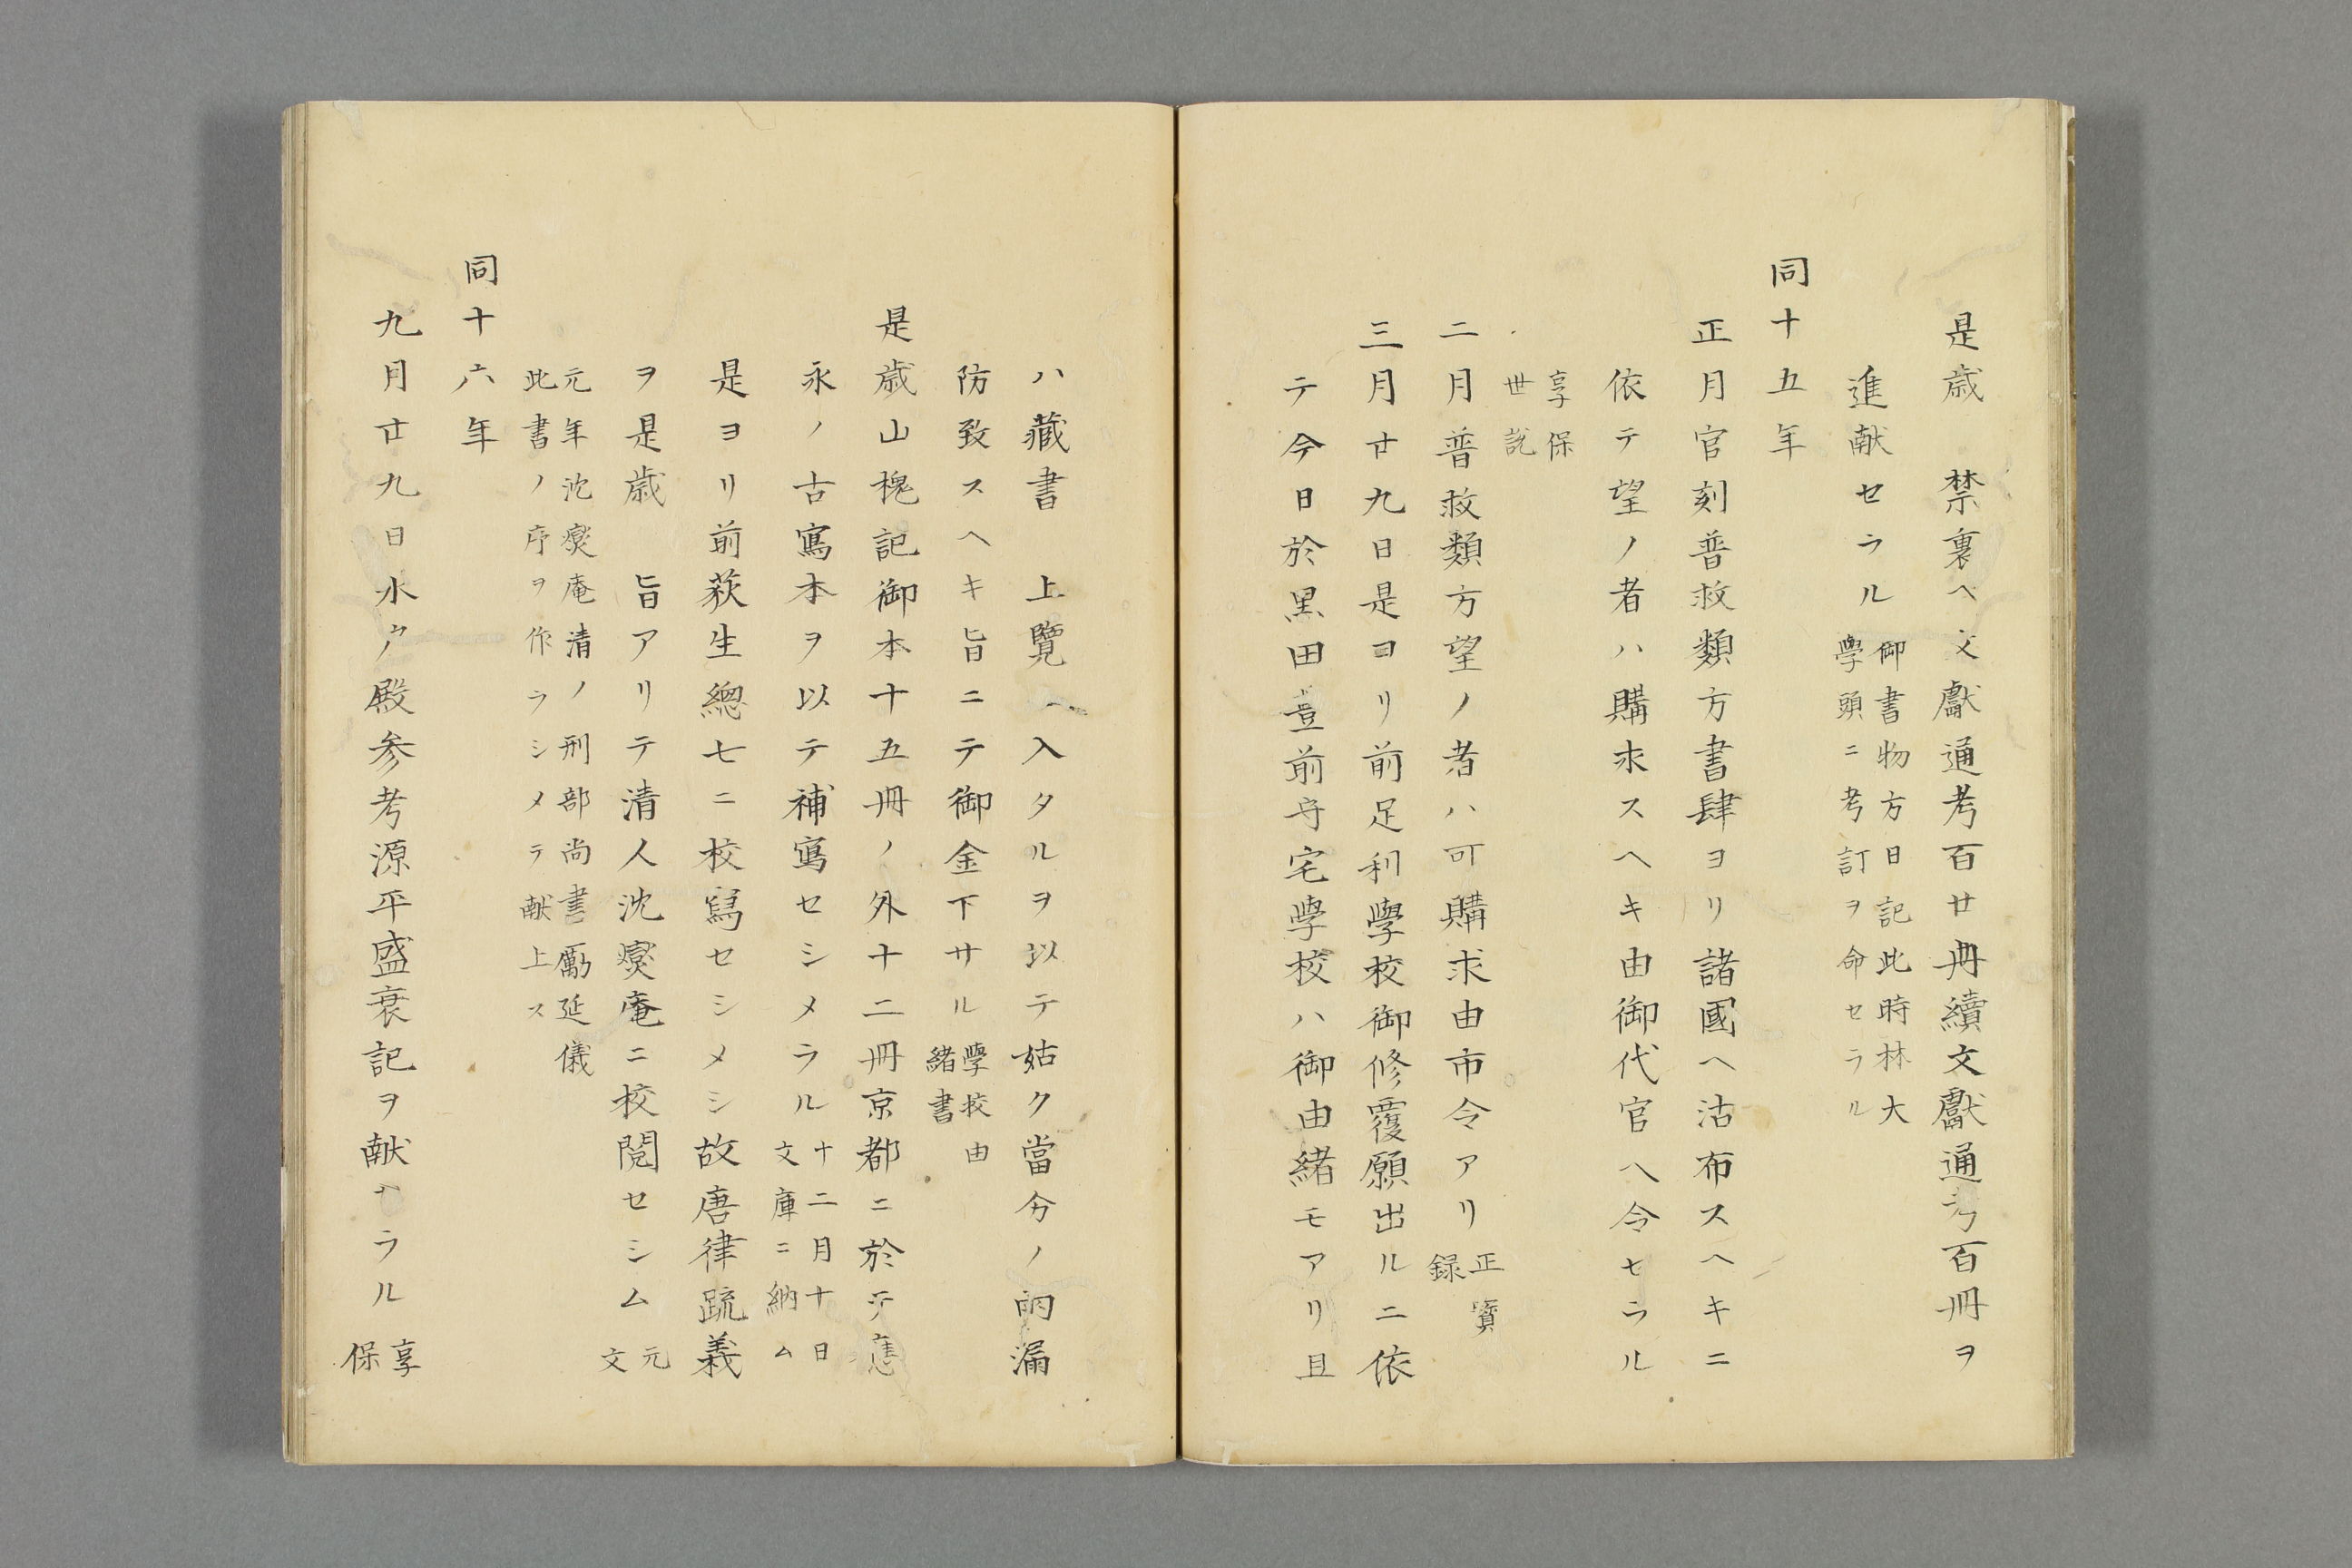 是歳　禁裏ヘ文獻通考百廿冊續文獻通考百冊ヲ
進献セラル
御書物方日記此時林大
學頭ニ考訂ヲ命セラル
同十五年
正月官刻普救類方書肆ヨリ諸國ヘ沽布スヘキニ
依テ望ノ者ハ購求スヘキ由御代官ヘ令セラル
享保
世説
二月普救類方望ノ者ハ可購求由市令アリ
正寶
録
三月廿九日是ヨリ前足利學校御修覆願出ルニ依
テ今日於黒田豊前守宅學校ハ御由緒モアリ且
ハ藏書　上覽ヘ入タルヲ以テ姑ク當分ノ雨漏
防致スヘキ旨ニテ御金下サル
學校由
緒書
是歳山槐記御本十五冊ノ外十二冊京都ニ於テ應
永ノ古寫本ヲ以テ補寫セシメラル
十二月十日
文庫ニ納ム
是ヨリ前荻生總七ニ校寫セシメシ故唐律疏義
ヲ是歳　旨アリテ清人沈燮庵ニ校閲セシム
元
文
元年沈燮庵清ノ刑部尚書勵延儀
此書ノ序ヲ作ラシメラテ献上ス
同十六年
九月廿九日水戸殿参考源平盛衰記ヲ献セラル
享
保